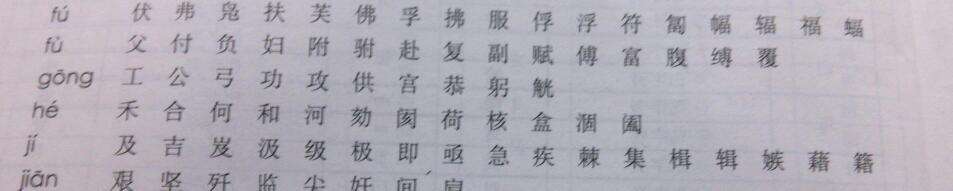 fú 伏 弗 凫 扶 芙 佛 孚 拂 服 俘 浮 符 匐 幅 辐 福 蝠
fù 父 付 负 妇 附 驸 赴 复 副 赋 傅 富 腹 缚 覆
gōng 工 公 弓 功 攻 供 宫 恭 躬 觥
hé 禾 合 何 和 河 劾 阂 荷 核 盒 涸 阖
jí 及 吉 岌 汲 级 极 即 亟 急 疾 棘 集 楫 辑 嫉 藉 籍
jiān 艰 坚 歼 监 尖 奸 间 肩